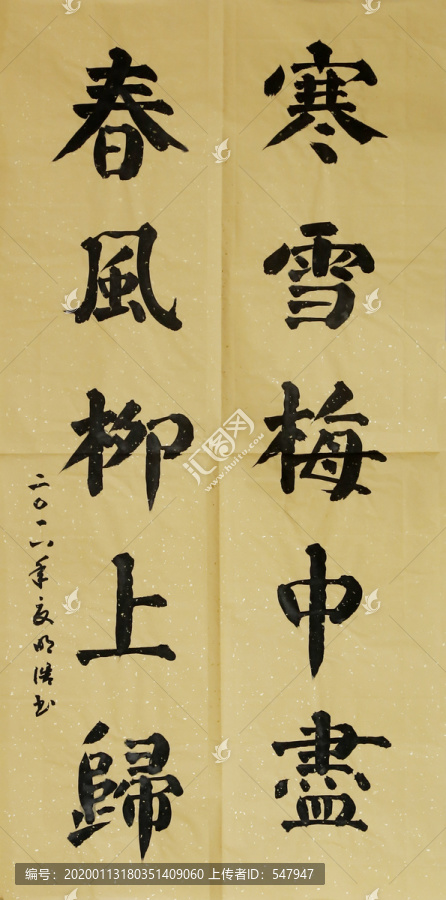 寒雪梅中盡
春風柳上歸
二〇一六年夏明浩书
汇图网
www.huitu.com
编号：20200113180351409060 上传者ID：547947